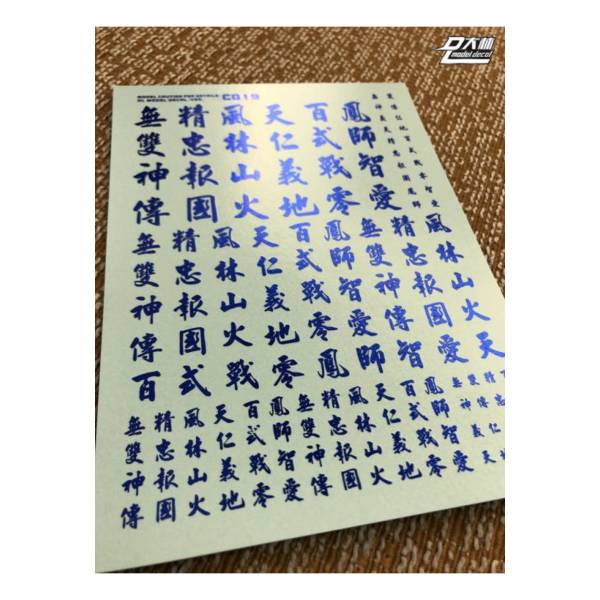 大林
model decal
CG19
無雙神傳
精忠報國
風林山火
天仁義地
百式戰零
鳳師智愛
無雙神傳百
精忠報國式
風林山火戰
天仁義地零
百式戰零鳳
鳳師智愛師
無雙神傳智
精忠報國愛
風林山火天
無雙神傳
精忠報國
風林山火
天仁義地
百式戰零
鳳師智愛
無雙神傳
精忠報國
風林山火
天仁義地
百式戰零
鳳師智愛